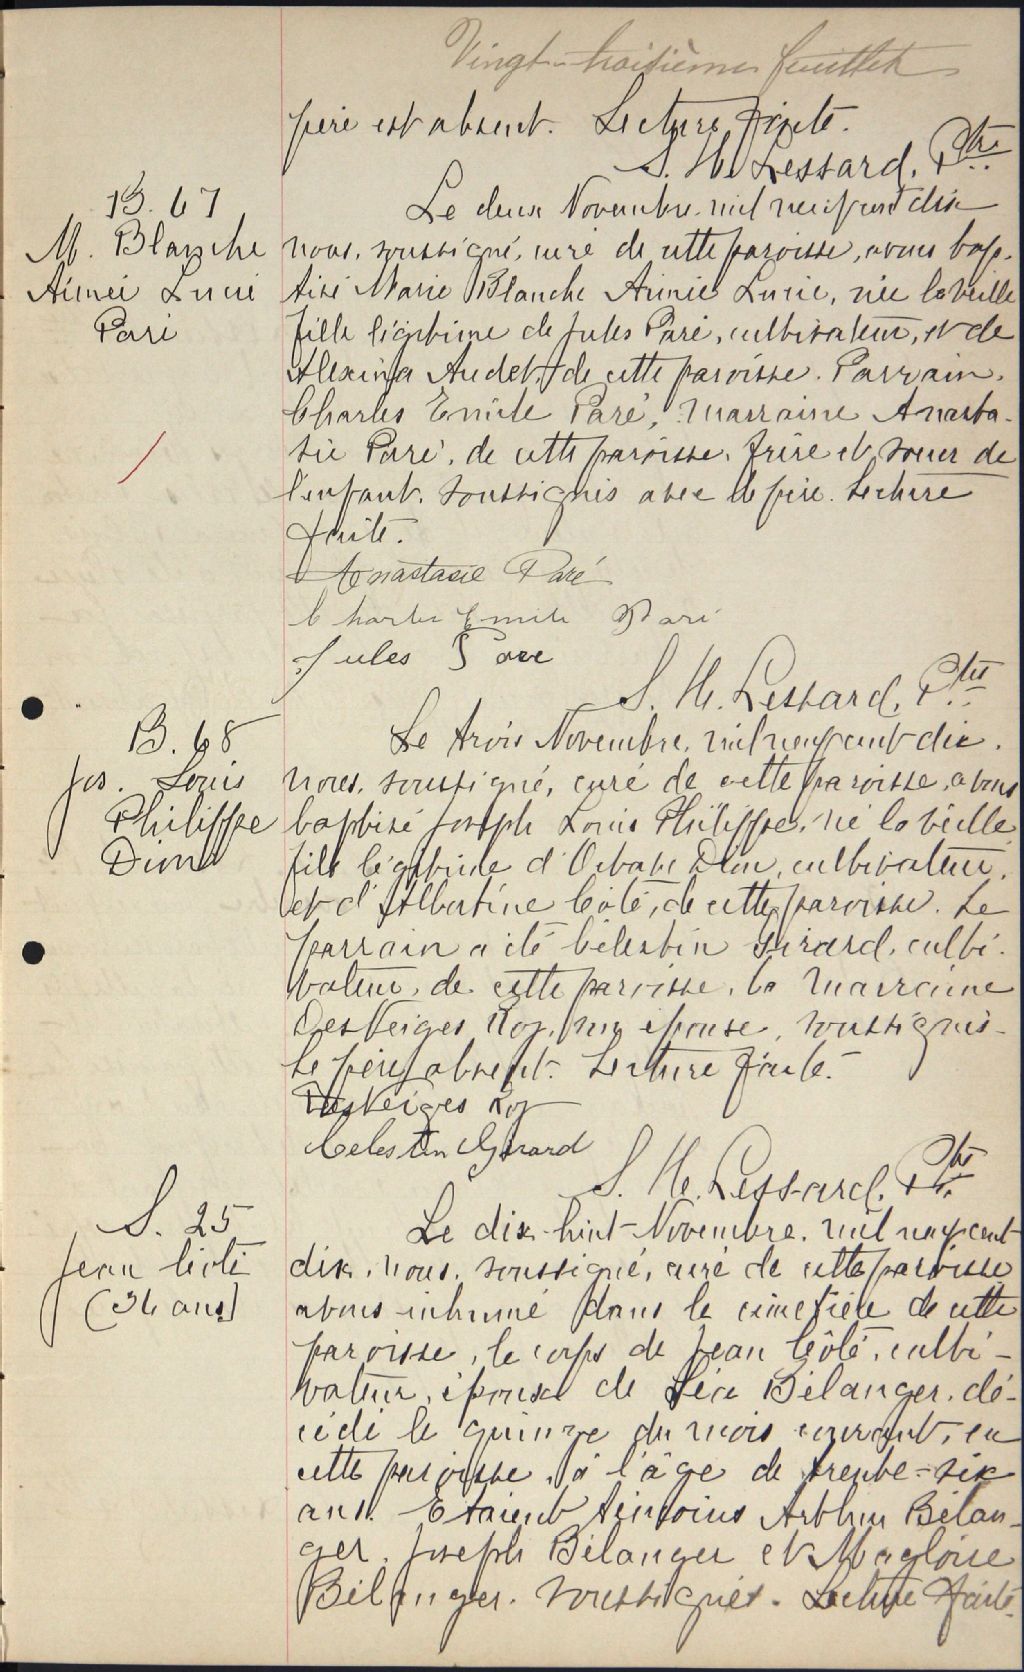 Vingt-troisième feuillet
père est absent. Lecture faite.
S. H. Lessard, Ptre
B. 67
M. Blanche
Aimée Lucie
Paré
Le deux Novembre, mil neuf cent dix
nous, soussigné, curé de cette paroisse, avons bap-
tisé Marie Blanche Aimée Lucie, née la veille
fille légitime de Jules Paré, cultivateur, et de
Alexina Audet, de cette paroisse. Parrain,
Charles Emile Paré, marraine Anasta-
sie Paré, de cette paroisse, frère et soeur de
l'enfant, soussignés avec le père. Lecture
faite.
Anastasie Paré
Charles Emile Paré
Jules Pare
S. H. Lessard, Ptre
B. 68
Jos. Louis
Philippe
Dion
Le trois Novembre, mil neuf cent dix,
nous, soussigné, curé de cette paroisse, avons
baptisé Joseph Louis Philippe, né la veille
fils légitime d'Octave Dion, cultivateur,
et d'Albertine Côté, de cette paroisse. Le
parrain a été Célestin Girard, culti-
vateur, de cette paroisse, la marraine
DesNeiges Roy, son épouse, soussignés
le père absent. Lecture faite.
DesNeiges Roy
Celestin Girard
S. H. Lessard, Ptre
S. 25
Jean Côté
(36 ans)
Le dix-huit Novembre, mil neuf cent
dix, nous, soussigné, curé de cette paroisse
avons inhumé dans le cimetière de cette
paroisse, le corps de Jean Côté, culti-
vateur, époux de Léa Bélanger, dé-
cédé le quinze du mois courant, en
cette paroisse, à l'âge de trente-six
ans. Etaient témoins Arthur Bélan-
ger, Joseph Bélanger et Magloire
Bélanger, soussignés. Lecture faite.